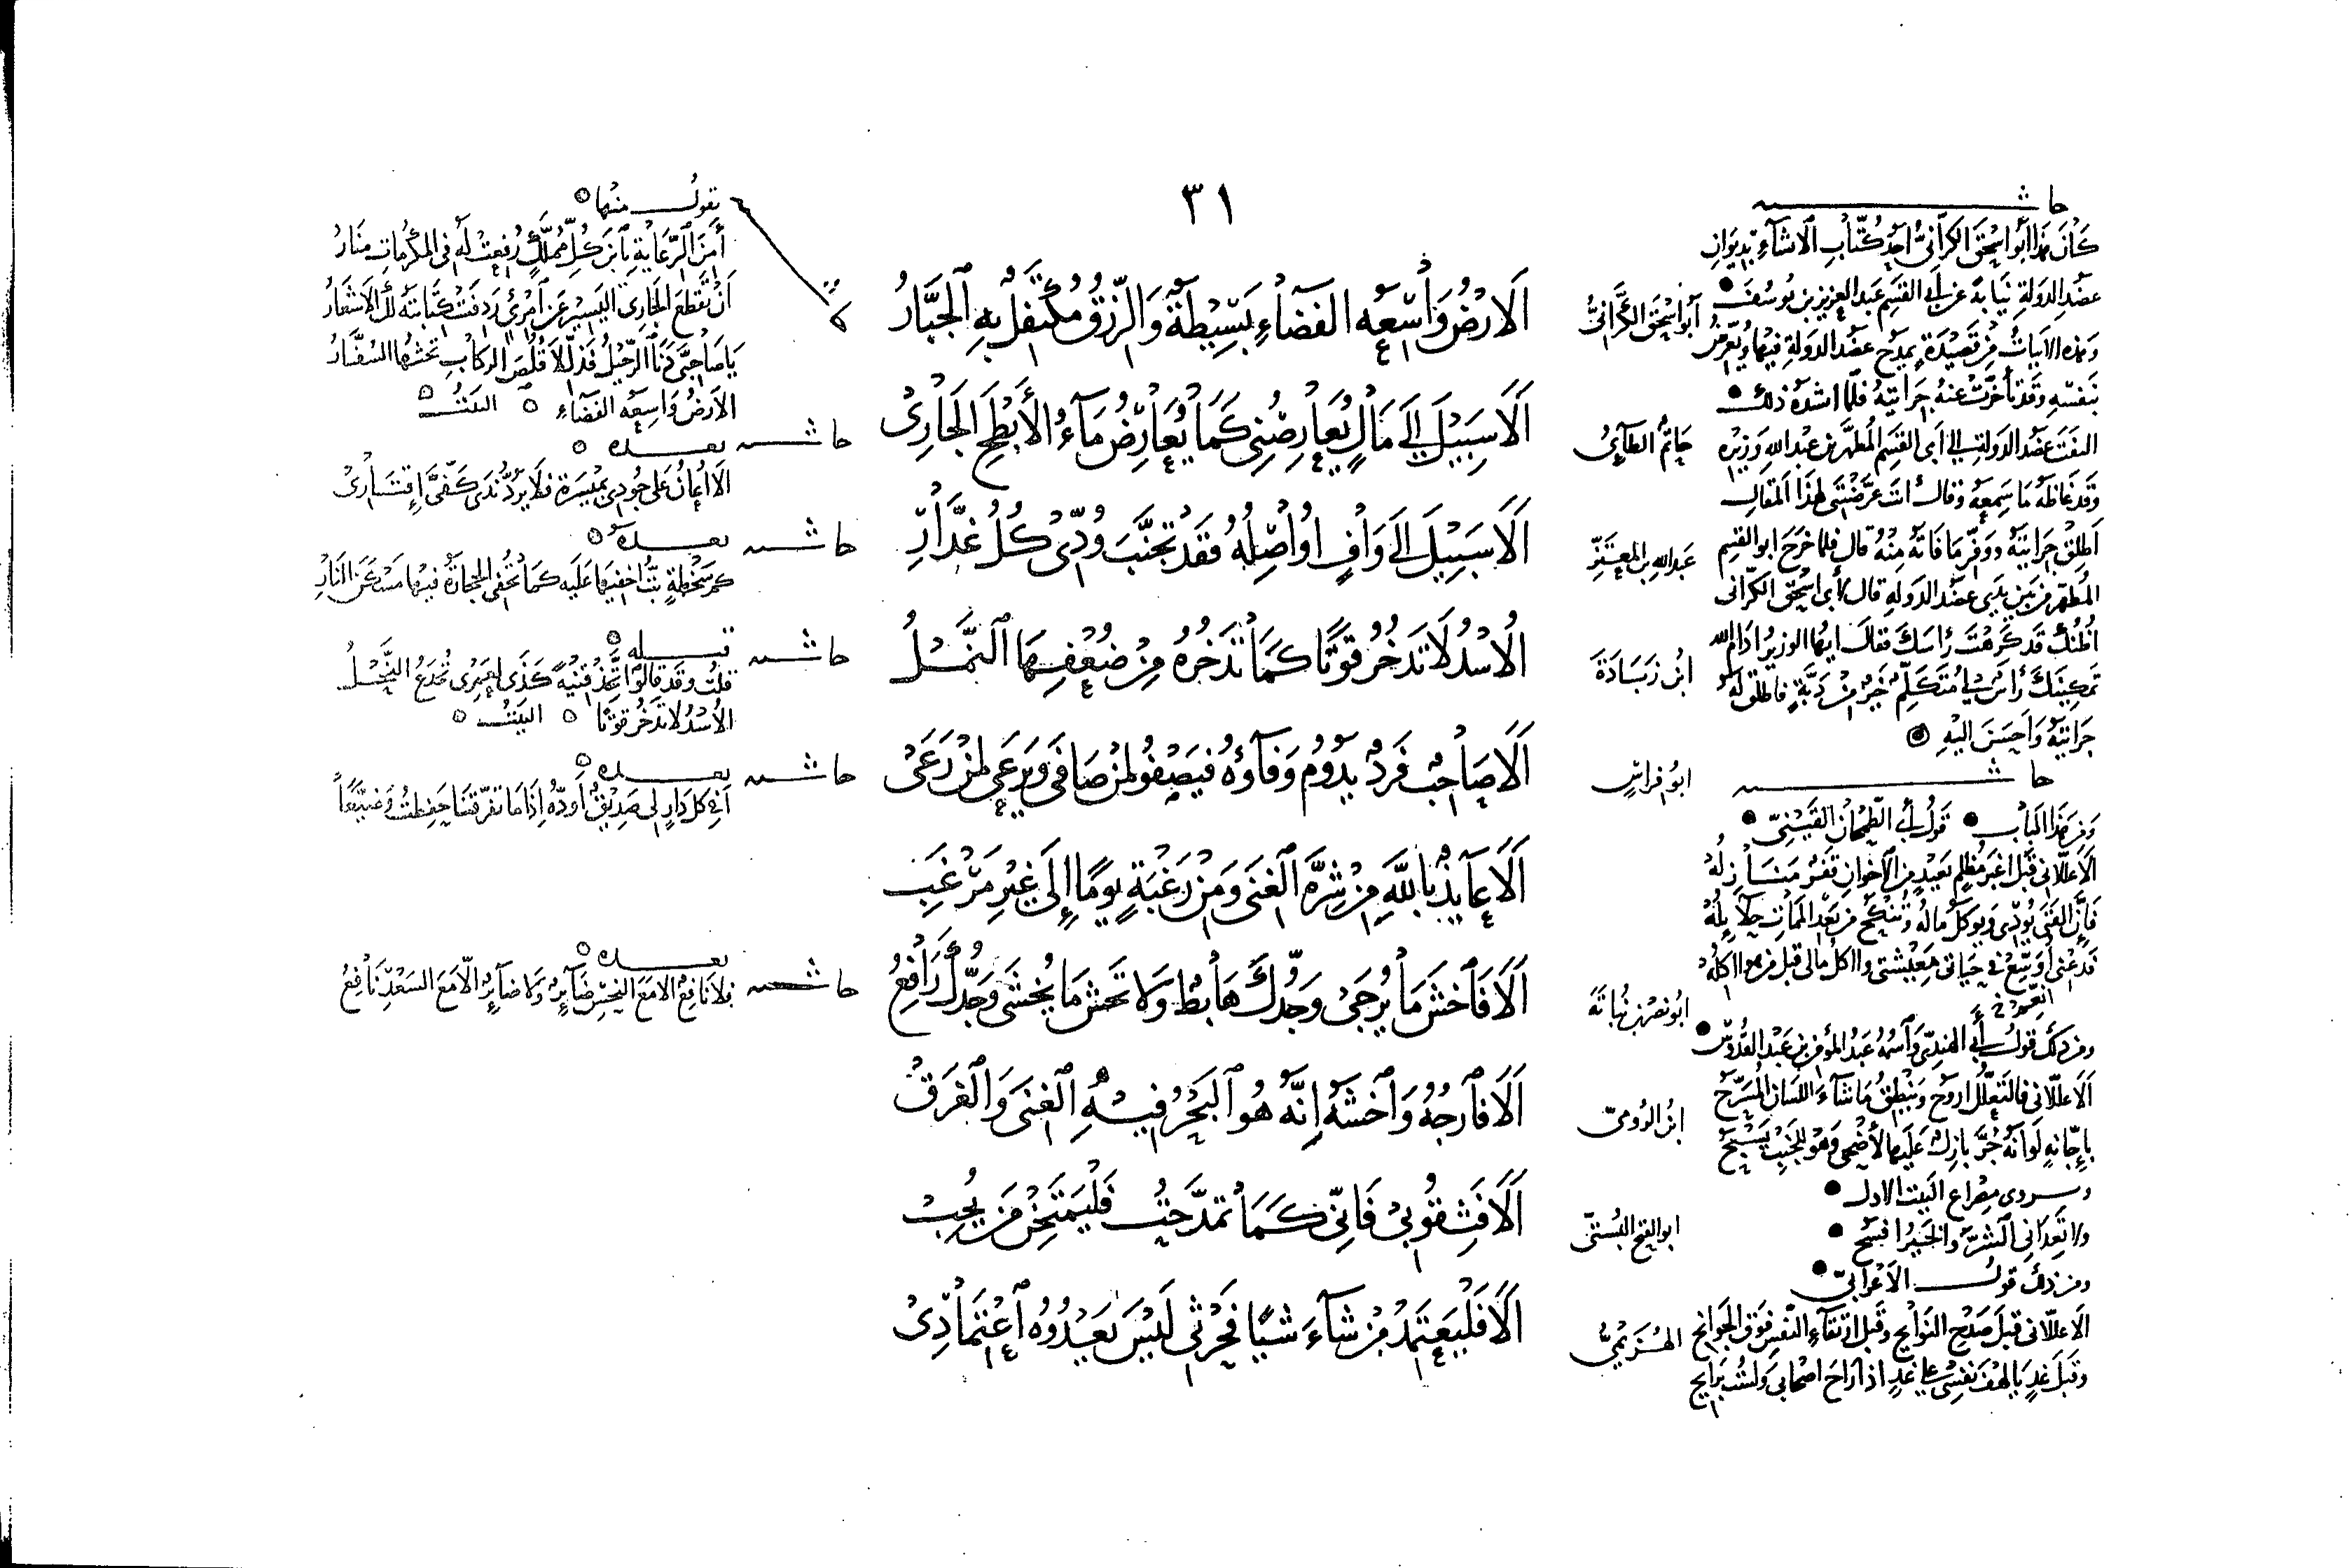 ٣١
حاشيه
كان هذا أبو اسحق الكراني احد كتاب الانشاء بديوان
عضد الدولة نيابة عن ابي القسم عبد العزيز بن يوسف
وهذه الابيات من قصيدة يمدح عضد الدولة فيها ويعرض
بنفسه وقد تأخرت عنه جرايته فلما انشده ذلك
التفت عضد الدولة الى ابى القسم المطهر بن عبد الله وزيره
وقد غاظه ما سمعه وقال انت عرضتنى لهذا المقال
اطلق جرايته ووفر ما فاته منه قال فلما خرج ابو القسم
المطهر من بين يدي عضد الدولة قال لأبى اسحق الكرانى
أظنك قد كرهت رأسك فقال ايها الوزير ادام الله
تمكينك رأس متكلم خير من دبة فاطلق له
جرايته وأحسن اليه
حاشيه
ومن هذا الباب قول أبي الطمحان القيني
ألا عللاني قبل اغبر مظلم بعيد من الاخوان قفر منازله
فإن الفتى يودي ويوكل ماله وتنكح من بعد الممات حلايله
ومن ذلك قول أبي الهندي وآسمه عبد المؤمن بن عبد القدوس
ألا عللاني فالتعلل اروح وينطق ما شاء اللسان المسرح
بإجانة لو انه خر بازل عليها لأضحى وهو للجنب يسبح
ويروى مصراع البيت الاول
ولا تعداني الشر والخير افسح
ومن ذلك قول الأعرابي
ألا عللاني قبل صدح النوايح وقبل ارتقاء النفس فوق الجوانح
وقبل غد يا لهف نفسى على غد اذا راح اصحابى ولست برايح
أبو اسحق الكراني
ألارض واسعه الفضاء بسيطة والرزق مكتفل به الجبار
حاتم الطآئي
ألا سبيل إلى مال يعارضنى كما يعارض ماء الأبطح الجاري
عبد الله بن المعتز
ألا سبيل الى واف اواصله فقد تجنب ودى كل غدار
ابن زبادة
الاسد لا تدخر قوتا كما تدخره من ضعفها النمل
ابو فراس
ألا صاحب فرد يدوم وفاؤه فيصفو لمن صافى ويرعى لمن رعى
ألا عايذ بالله من شره الغنى ومن رغبة يوما إلى غير مرغب
ابو نصر بن نباتة
ألا فاخش ما يرجى وجدك هابط ولا تخش ما يخشى وجدك رافع
ابن الرومى
ألا فارجه وآخشه إنه هو البحر فيه الغنى والغرق
ابو الفتح البستى
ألا فثقو بى فانى كما تمدحت فليمتحن من يحب
الهزيمي
ألا فليعتمد من شاء شيا فحزنى ليس يعدوه آعتمادى
يقول منها
أمن الرعاية يا بن كل مملك رفعت له فى المكرمات منار
ان تقطع الجارى اليسير عن امرئ ردفت كتابته لك الاشعار
يا صاحبى دنا الرحيل فذللا قلص الركاب تحثها السفار
الارض واسعه الفضاء البيت
حاشيه بعده
ألا اعان على جودى بميسرة فلا يرد ندى كفى إقتارى
حاشيه بعده
كم سخطة بت اخفيها عليه كما تخفى الحجارة فيها مسكن النار
حاشيه قبله
قلت وقد قالوا اتخذ قنية كذى لعمرى تخدع النحل
الاسد لا تدخر قوتا البيت
حاشيه بعده
أفي كل دار لى صديق أوده اذا ما تفرقنا حفظت وضيعا
حاشيه بعده
فلا نافع الا مع النحس ضآير ولا ضآير الا مع السعد نافع